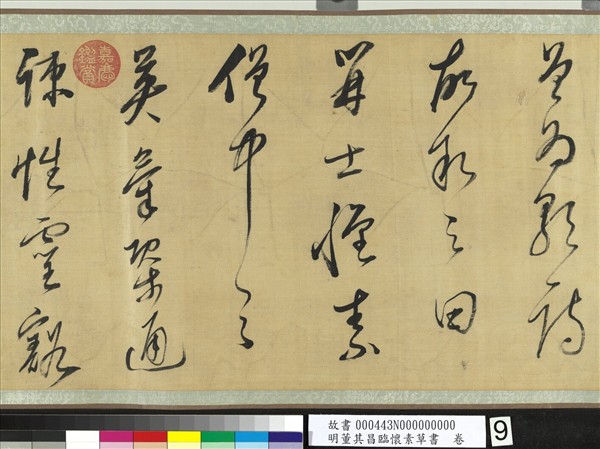 曾為歌詩
故敘之曰
開士懷素
僧中之
英氣概通
疎性靈豁
嘉慶鑑賞
故書 000443N000000000
明董其昌臨懷素草書 卷
9